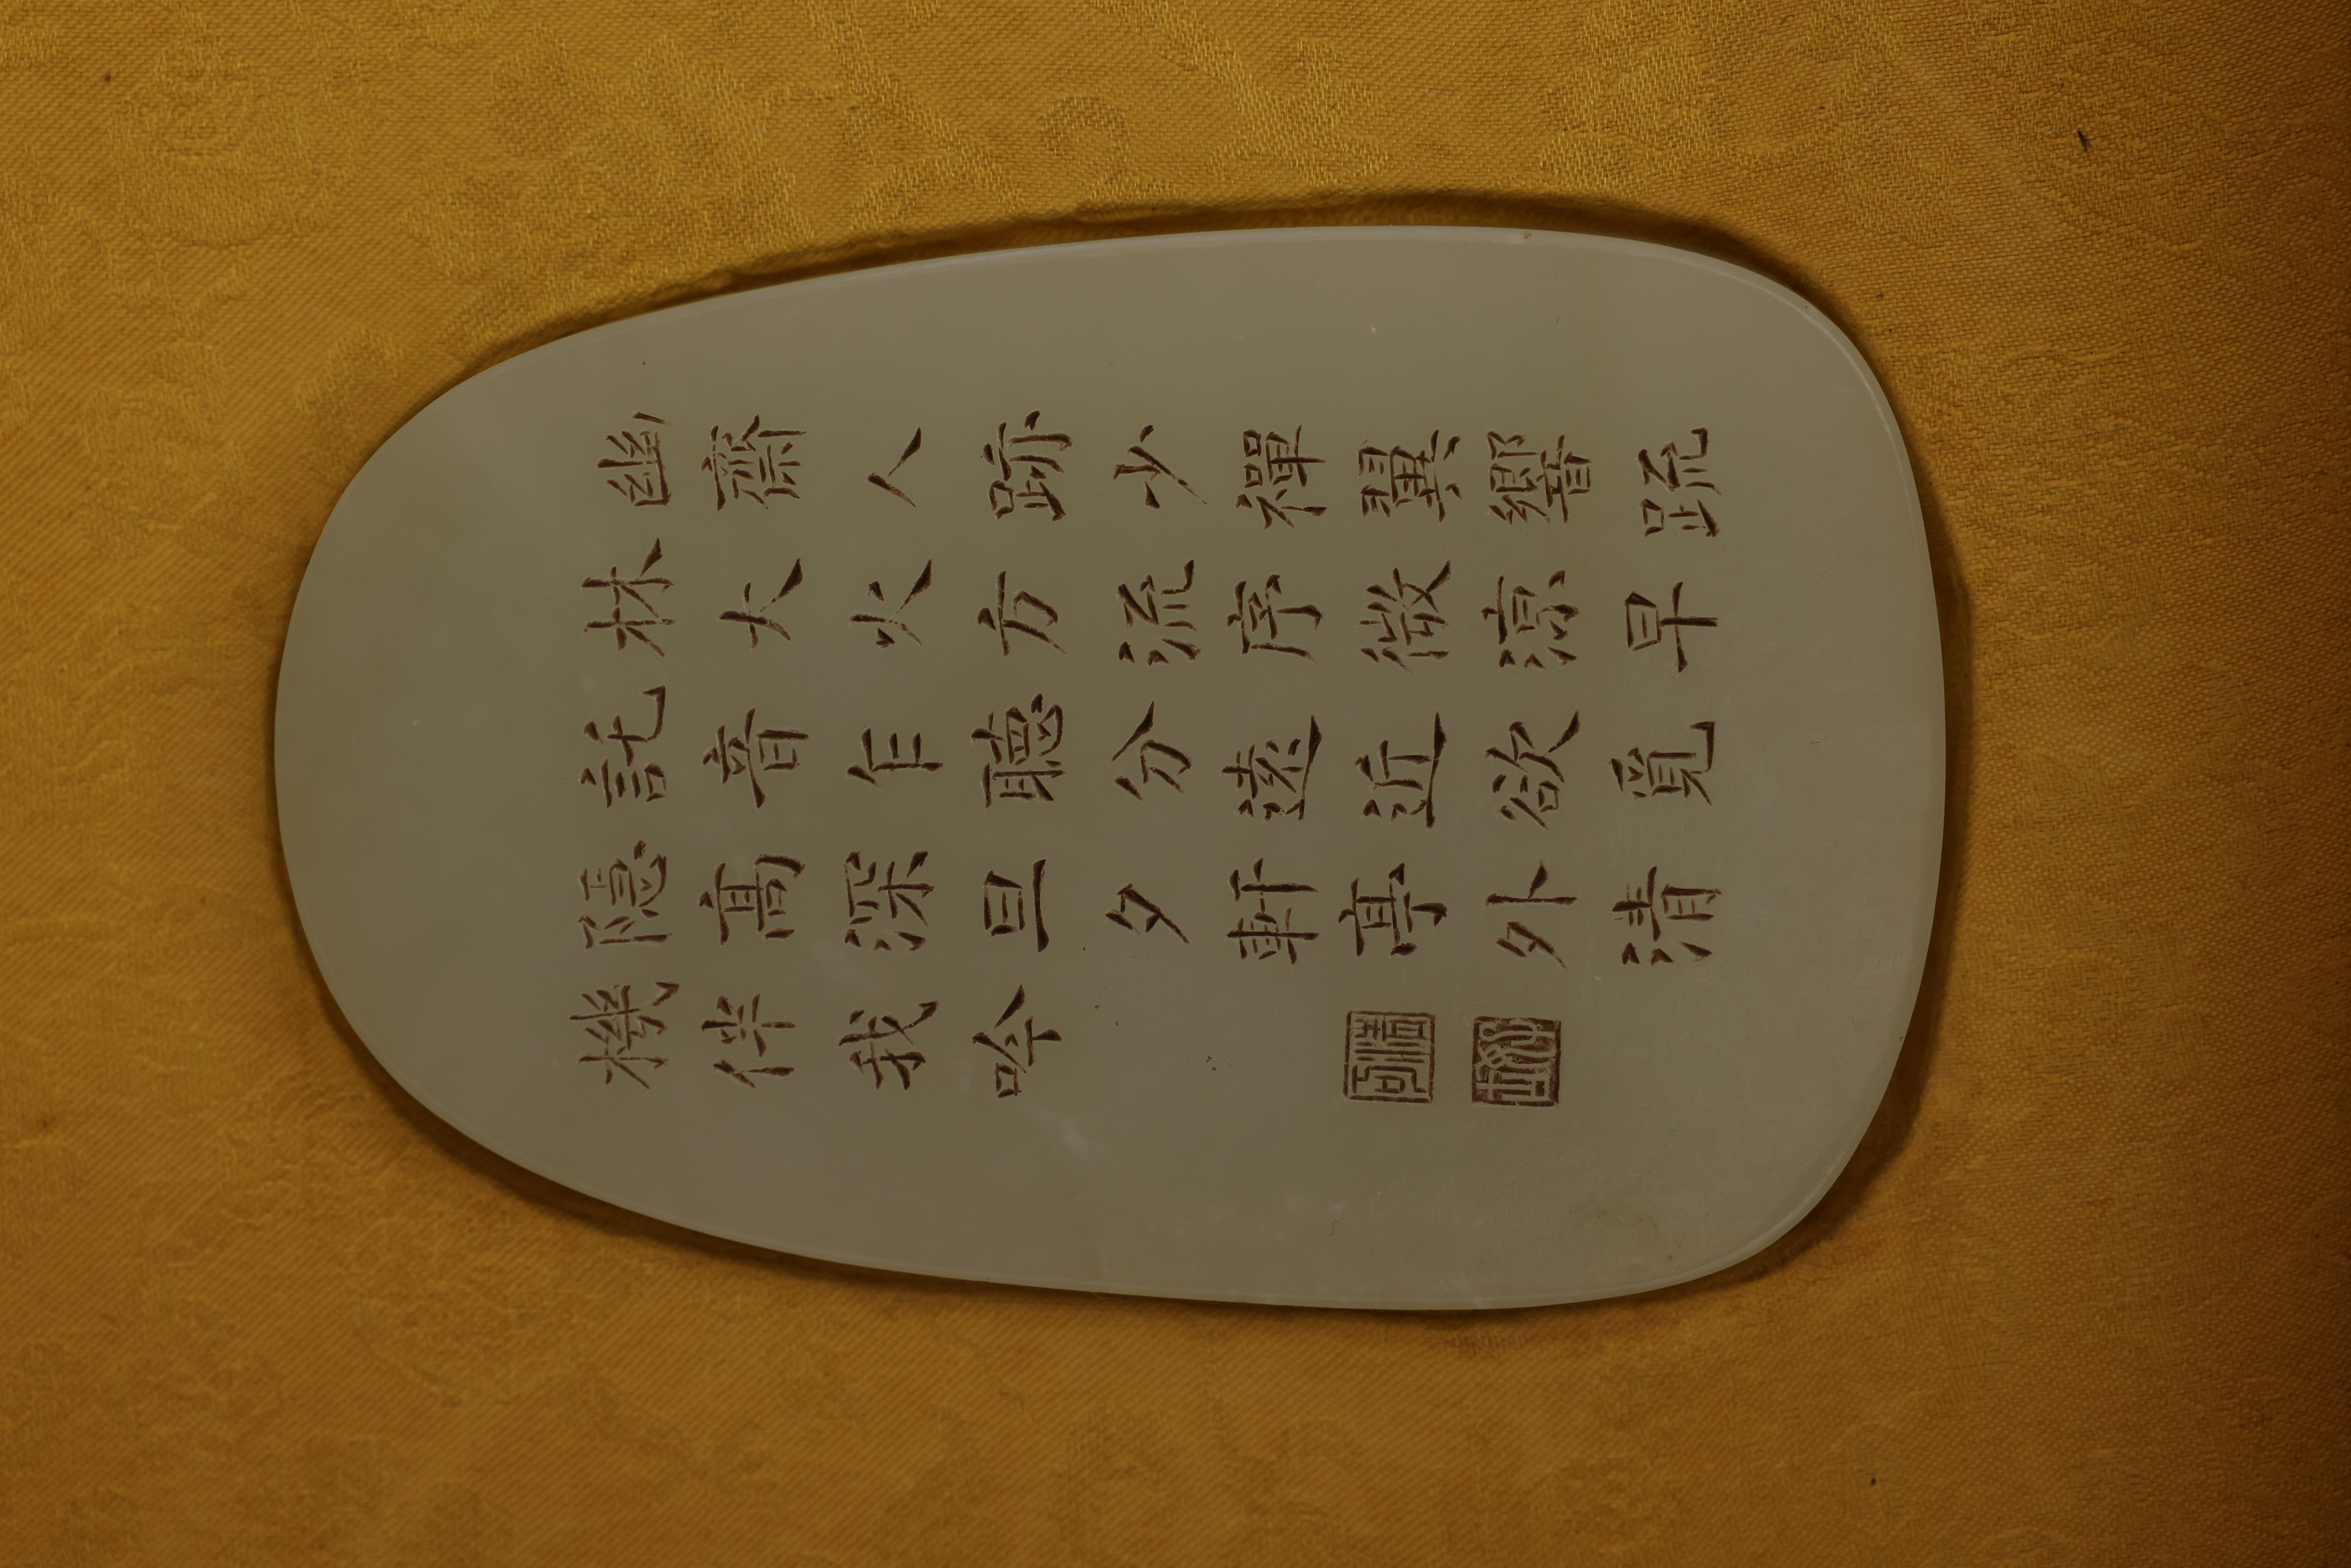 幽齋人跡少禪翼響疏
林大火方流序微涼早
託音乍聽分遠近欲覓
隱高深旦夕軒亭外清
機伴我吟